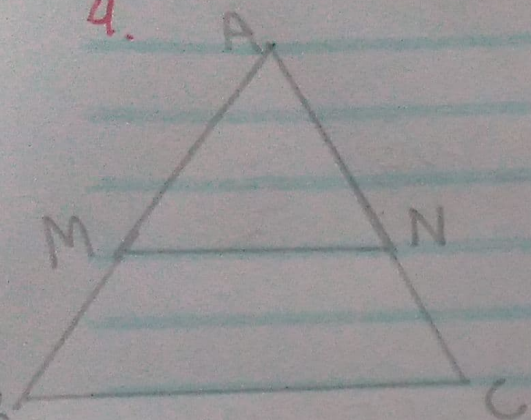 4.
A
M N
C